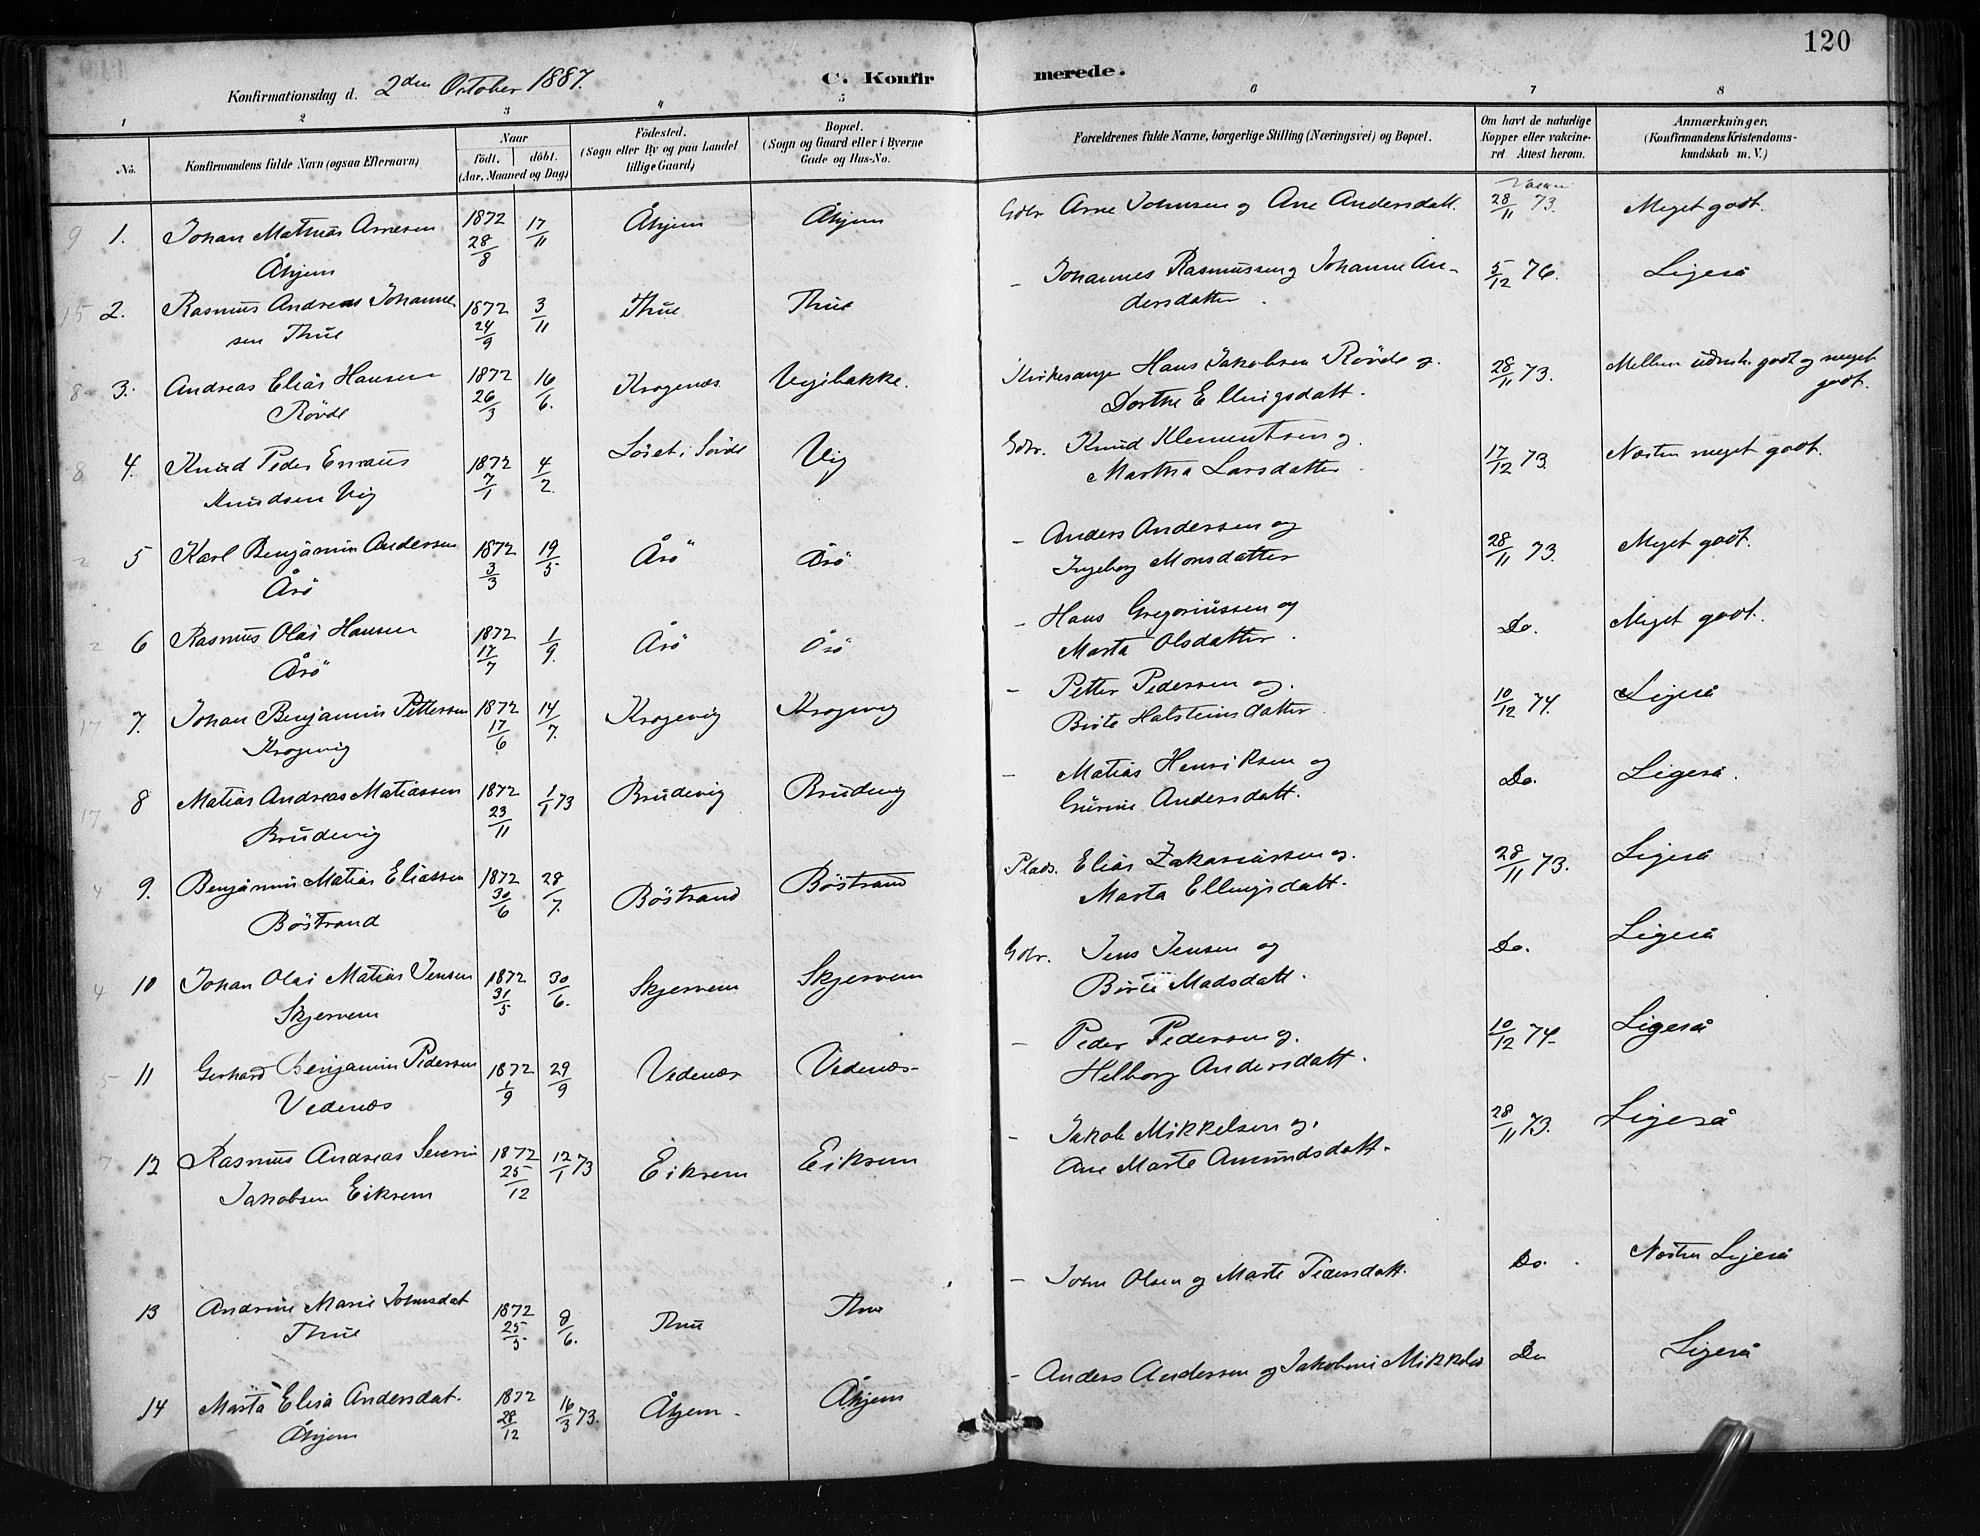 120
Konfirmationsdag d. 2den October 1887.
C. Konfir merede.
1 2 3 4 5 6 7 8
No.
Konfirmandens fulde Navn (ogsaa Efternavn)
Naar
födt. döbt.
(Aar, Maaned og Dag)
Födested.
(Sogn eller By og paa Landet
tillige Gaard)
Bopæl.
(Sogn og Gaard eller i Byerne
Gade og Hus-No.
Forældrenes fulde Navne, borgerlige Stilling (Næringsvei) og Bopæl.
Om havt de naturlige
Kopper eller vakcine-
ret Attest herom.
Anmærkninger,
(Konfirmandens Kristendoms-
kundskab m. V.)
9 1. Johan Mathias Arnesen 1872 28/8 17/11 Åhjem Åhjem Gdbr Arne Johnsen og Ane Andersdatt. 28/11 73. Meget godt.
Åhjem
15 2. Rasmus Andreas Johanne 1872 24/9 3/11 Thue Thue - Johannes Rasmussen og Johanne An- 5/12 76. Ligeså
sen Thue dersdatter
8 3. Andreas Eliás Hansen 1872 26/3 16/6. Krogenæs Vejibakke. Kirkesanger Hans Jakobsen Røvde og 28/11 73. Mellem udmk. godt og meget
Røvde Dorthe Ellingsdatt. godt.
8 4. Knud Peder Emaus 1872 7/1 4/2. Søret i Søvde Vig Gdbr. Knud Klementsen og 17/12 73. Næsten meget godt.
Knudsen Vig Martha Larsdatter
2 5 Karl Benjamin Andersen 1872 3/3 19/5 Årö Årö - Anders Andersen og 28/11 73. Meget godt.
Årö Ingeborg Monsdatter
2 6 Rasmus Olai Hansen 1872 17/7 1/9. Årö Årö - Hans Gregoriussen og Do. Meget godt.
Årö Marta Olsdatter
17 7. Johan Benjamin Pettersen 1872 17/6 14/7. Krogevig Krogevig - Petter Pedersen og 10/12 74. Ligeså
Krogevig Birte Halsteinsdatter
17 8 Matias Andreas Matiassen 1872 23/11 1/1 73 Brudevig Brudevig - Matias Henriksen og Do. Ligeså.
Brudevig Gurine Andersdatt.
4 9. Benjamin Matias Eliassen 1872 30/6 28/7. Böstrand Böstrand Plads. Eliás Zakariassen og 28/11 73. Ligeså
Böstrand Marta Ellingsdatt.
4 10 Johan Olai Matias Jensen 1872 31/5 30/6. Skjervem Skjervem Gdbr. Jens Jensen og Do. Ligeså
Skjervem Birte Madsdatt.
5 11 Gerhard Benjamin Pedersen 1872 1/9 29/9 Vedenæs Vedenæs - Peder Pedersen og 10/12 74 Ligeså
Vedenæs Helborg Andersdatt.
7 12 Rasmus Andreas Severin 1872 25/12 12/1 73 Eikrem Eikrem - Jakob Mikkelsen og 28/11 73. Ligeså
Jakobsen Eikrem Ane Marte Amundsdatt.
13 Andrine Marie Johnsdat 1872 25/5 8/6. Thue Thue - John Olsen og Marte Pedersdatt. Do. Næsten Ligeså
Thue
14 Marta Elisa Andersdat. 1872 28/12 16/3 73. Åhjem Åhjem - Anders Andersen og Jakobine Mikkels Do Ligeså
Åhjem